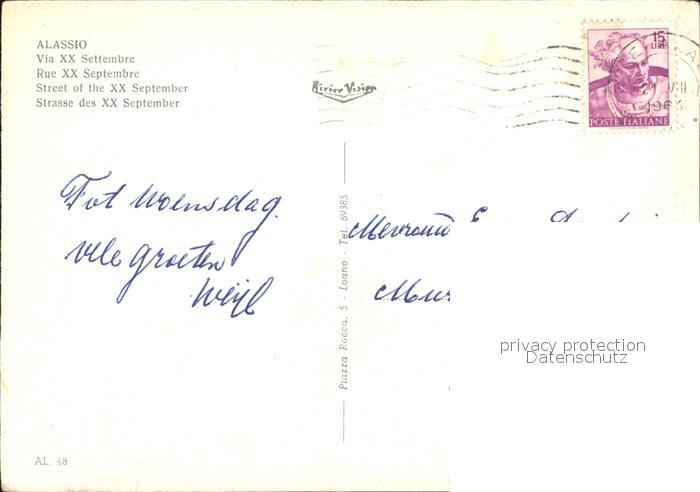 ALASSIO
Via XX Settembre
Rue XX Septembre
Street of the XX September
Strasse des XX September
Rivier Vision
15
LIRE
POSTE ITALIANE
VIII
Tot Woensdag.
vele groeten
Mevrouw
Piazza Rocca, 5 - Loano - Tel. 69385
privacy protection
Datenschutz
AL. 48